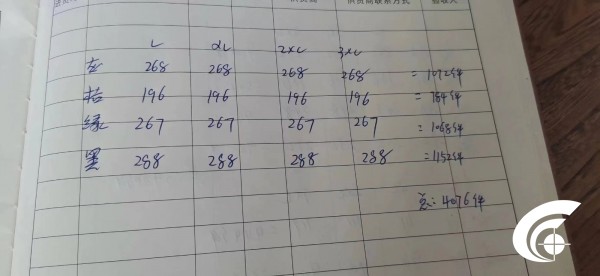 供货商联系方式
L XL 2XL 3XL
268 268 268 268 =1072件
桔 196 196 196 196 =784件
绿 267 267 267 267 =1068件
黑 288 288 288 288 =1152件
总:4076件